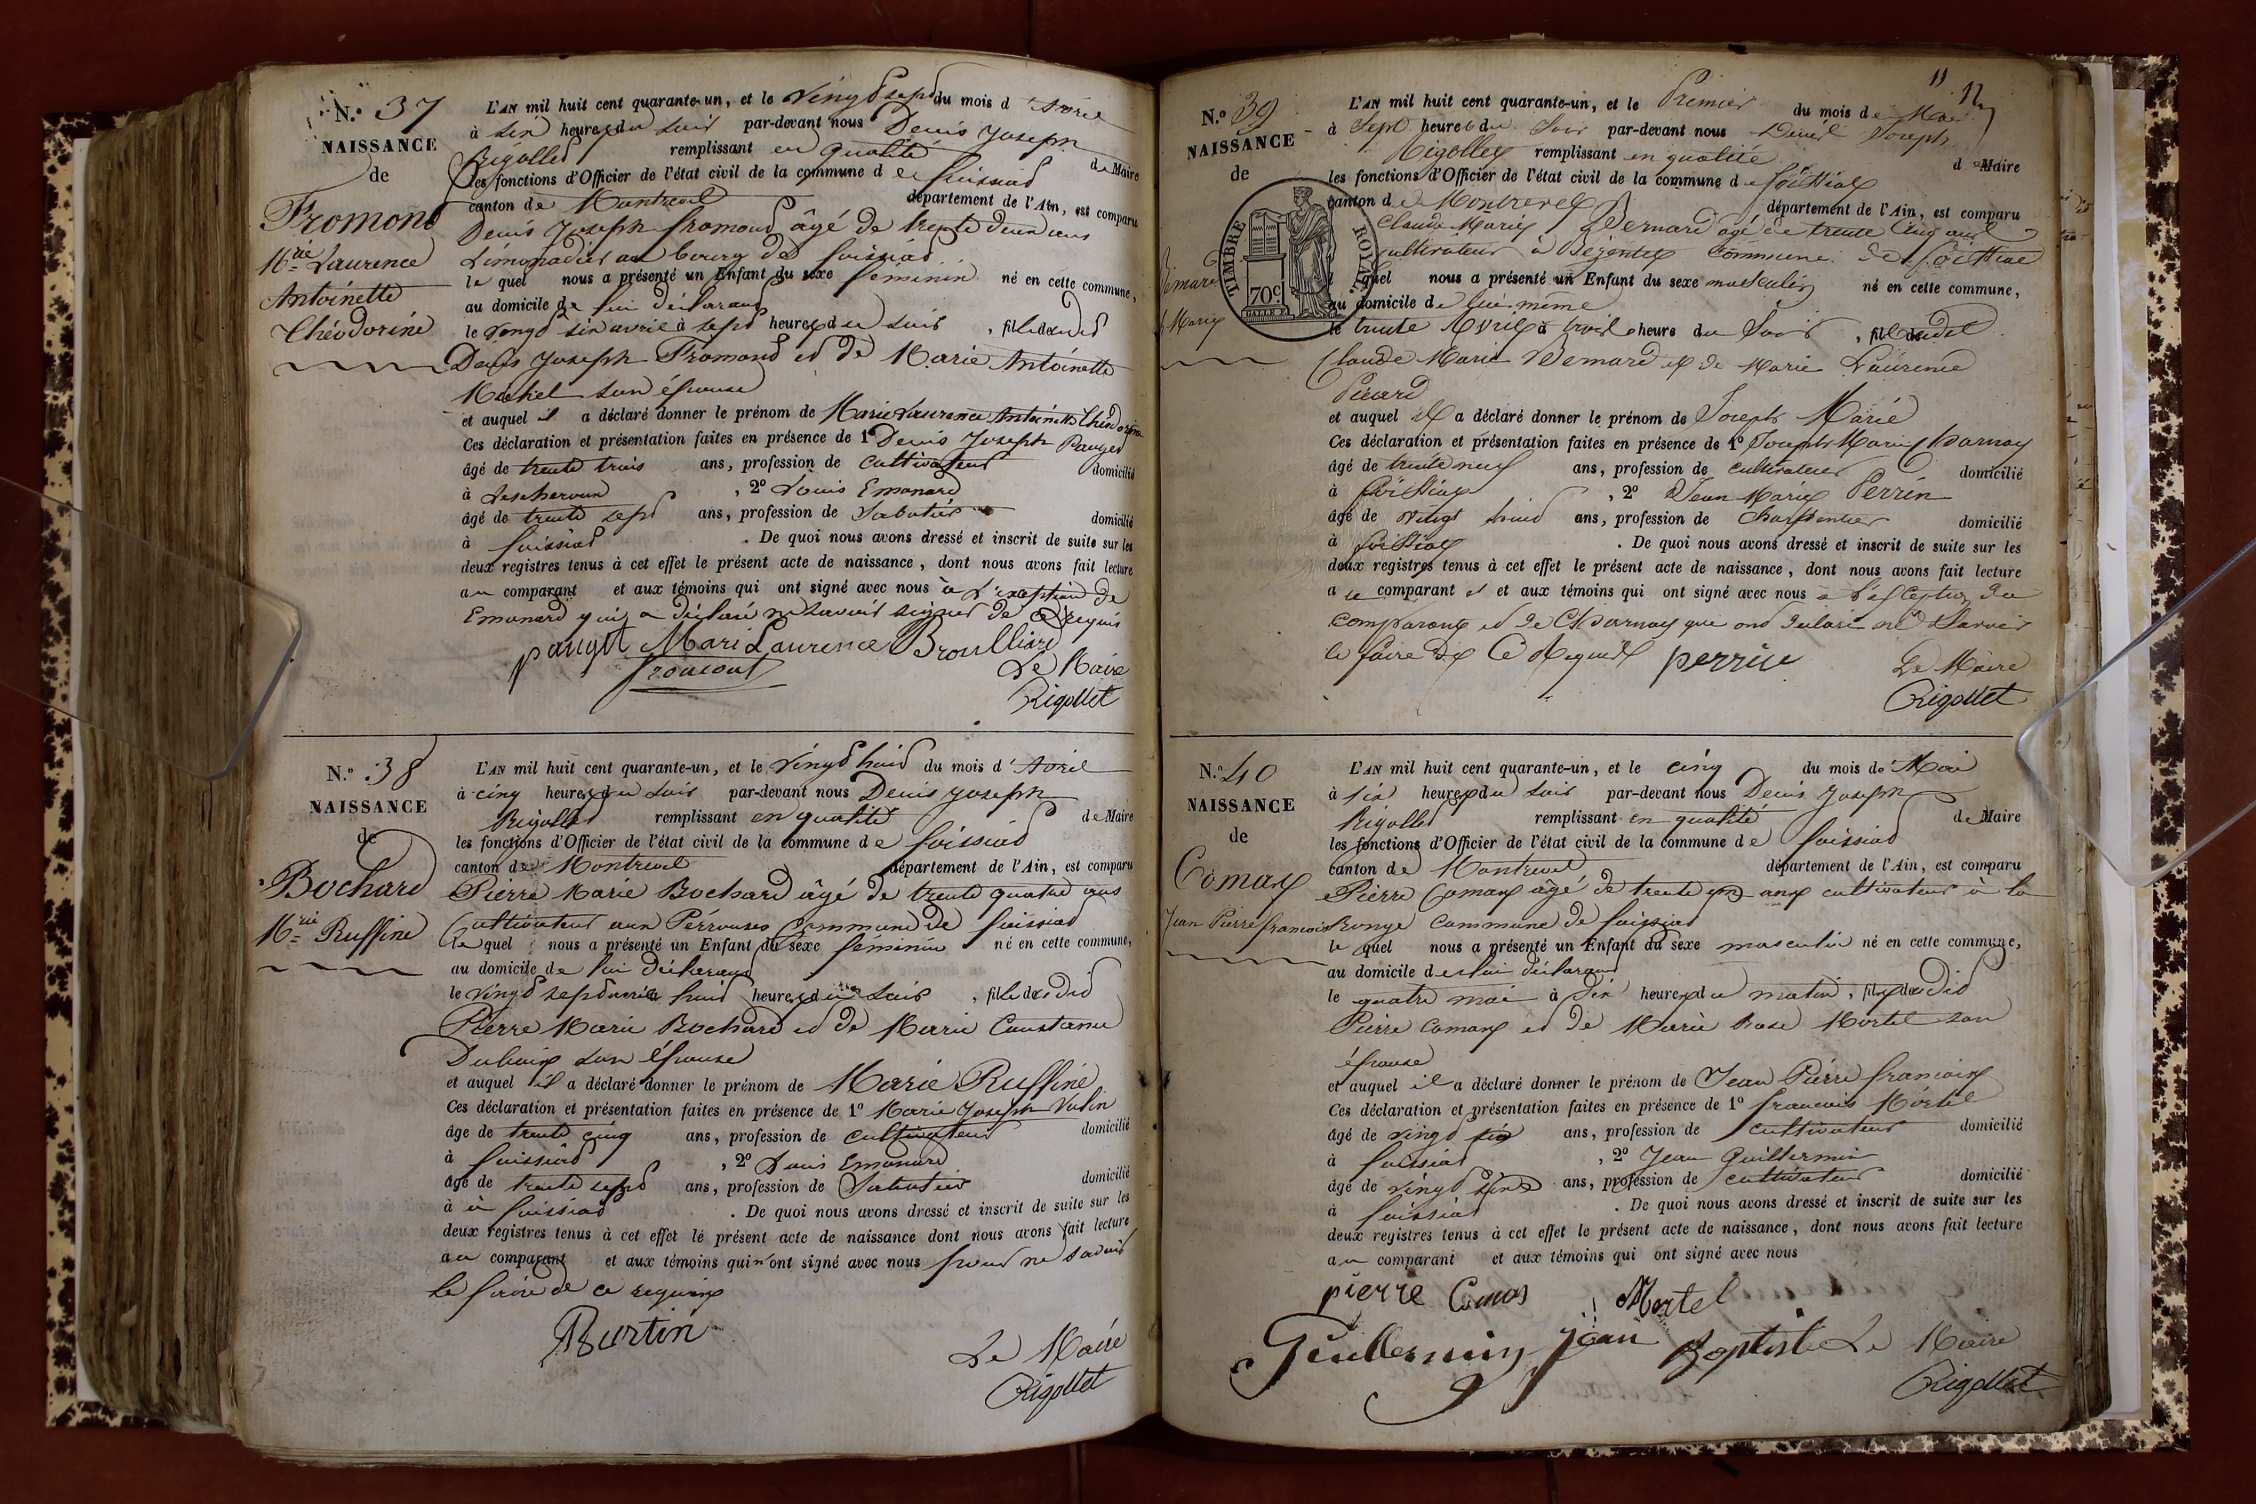 N.° 37
NAISSANCE
de
Fromont
M.rie Laurence
Antoinette
Théodorine
L'AN mil huit cent quarante-un, et le vingt sept du mois d'avril
à six heures du soir par-devant nous Denis Joseph
Rigollet remplissant en qualité de Maire
les fonctions d'Officier de l'état civil de la commune de foissiat
canton de Montrevel département de l'Ain, est comparu
Denis Joseph fromont âgé de trente deux ans
Limonadier au bourg de foissiat
le quel nous a présenté un Enfant du sexe féminin né en cette commune,
au domicile de lui déclarant
le vingt six avril à sept heures du soir, fille dudit
Denis Joseph Fromont et de Marie Antoinette
son épouse
et auquel il a déclaré donner le prénom de Marie Laurence Antoinette Théodorine
Ces déclaration et présentation faites en présence de 1° Denis Joseph Pauget
âgé de trente trois ans, profession de cultivateur domicilié
à Lescheroux, 2° Louis Emonard
âgé de trente sept ans, profession de Sabotier domicilié
à foissiat. De quoi nous avons dressé et inscrit de suite sur les
deux registres tenus à cet effet le présent acte de naissance, dont nous avons fait lecture
au comparant et aux témoins qui ont signé avec nous à l'exception de
Emonard qui a déclaré ne savoir signer de ce requis
pauget Mari Laurence Broulliard
fromont Le Maire
Rigollet
N.° 38
NAISSANCE
de
Bochard
M.rie Ruffine
L'AN mil huit cent quarante-un, et le vingt huit du mois d'Avril
à cinq heures du soir par-devant nous Denis Joseph
Rigollet remplissant en qualité de Maire
les fonctions d'Officier de l'état civil de la commune de foissiat
canton de Montrevel département de l'Ain, est comparu
Pierre Marie Bochard âgé de trente quatre ans
Cultivateur aux Pérouses Commune de foissiat
le quel nous a présenté un Enfant du sexe féminin né en cette commune,
au domicile de lui déclarant
le vingt sept avril à huit heures du soir, fille dudit
Pierre Marie Bochard et de Marie Constance
Dubois son épouse
et auquel il a déclaré donner le prénom de Marie Ruffine
Ces déclaration et présentation faites en présence de 1° Marie Joseph
âgé de trente cinq ans, profession de cultivateur domicilié
à foissiat, 2° Louis Emonard
âgé de trente sept ans, profession de Sabotier domicilié
à à foissiat. De quoi nous avons dressé et inscrit de suite sur les
deux registres tenus à cet effet le présent acte de naissance dont nous avons fait lecture
au comparant et aux témoins qui n'ont signé avec nous pour ne savoir
le faire de ce requis
Burtin
Le Maire
Rigollet
11 12
N.° 39
NAISSANCE
de
TIMBRE ROYAL
70c
L'AN mil huit cent quarante-un, et le Premier du mois de Mai
à Sept heures du Soir par-devant nous Denis Joseph
Rigollet remplissant en qualité de Maire
les fonctions d'Officier de l'état civil de la commune de foissiat
canton de Montrevel département de l'Ain, est comparu
Claude Marie Bernard âgé de trente cinq ans
cultivateur à Bezentet Commune de foissiat
le quel nous a présenté un Enfant du sexe masculin né en cette commune,
au domicile de lui même
le trente Avril à trois heures du Soir, fils dudit
Claude Marie Bernard et de Marie Laurence
Picard
et auquel il a déclaré donner le prénom de Joseph Marie
Ces déclaration et présentation faites en présence de 1° Joseph Marie Charnay
âgé de trente neuf ans, profession de cultivateur domicilié
à foissiat, 2° Jean Marie Perrin
âgé de vingt huit ans, profession de Charpentier domicilié
à foissiat. De quoi nous avons dressé et inscrit de suite sur les
deux registres tenus à cet effet le présent acte de naissance, dont nous avons fait lecture
a ce comparant et et aux témoins qui ont signé avec nous à l'exception du
comparant et de Charnay que ont déclaré ne Savoir
le faire de Ce Requis perrin Le Maire
Rigollet
N.° 40
NAISSANCE
de
Comas
Jean Pierre françois
L'AN mil huit cent quarante-un, et le cinq du mois de Mai
à six heures du soir par-devant nous Denis Joseph
Rigollet remplissant en qualité de Maire
les fonctions d'Officier de l'état civil de la commune de foissiat
canton de Montrevel département de l'Ain, est comparu
Pierre Comas âgé de trente ans cultivateur à la
Ronge Commune de foissiat
le quel nous a présenté un Enfant du sexe masculin né en cette commune,
au domicile de lui déclarant
le quatre mai à dix heures du matin, fils dudit
Pierre Comas et de Marie Rose Mortel son
épouse
et auquel il a déclaré donner le prénom de Jean Pierre françois
Ces déclaration et présentation faites en présence de 1° françois Mortel
âgé de vingt six ans, profession de cultivateur domicilié
à foissiat, 2° Jean Guillermin
âgé de vingt ans, profession de cultivateur domicilié
à foissiat. De quoi nous avons dressé et inscrit de suite sur les
deux registres tenus à cet effet le présent acte de naissance, dont nous avons fait lecture
au comparant et aux témoins qui ont signé avec nous
pierre Comas Mortel
Guillermin jean Baptiste Le Maire
Rigollet